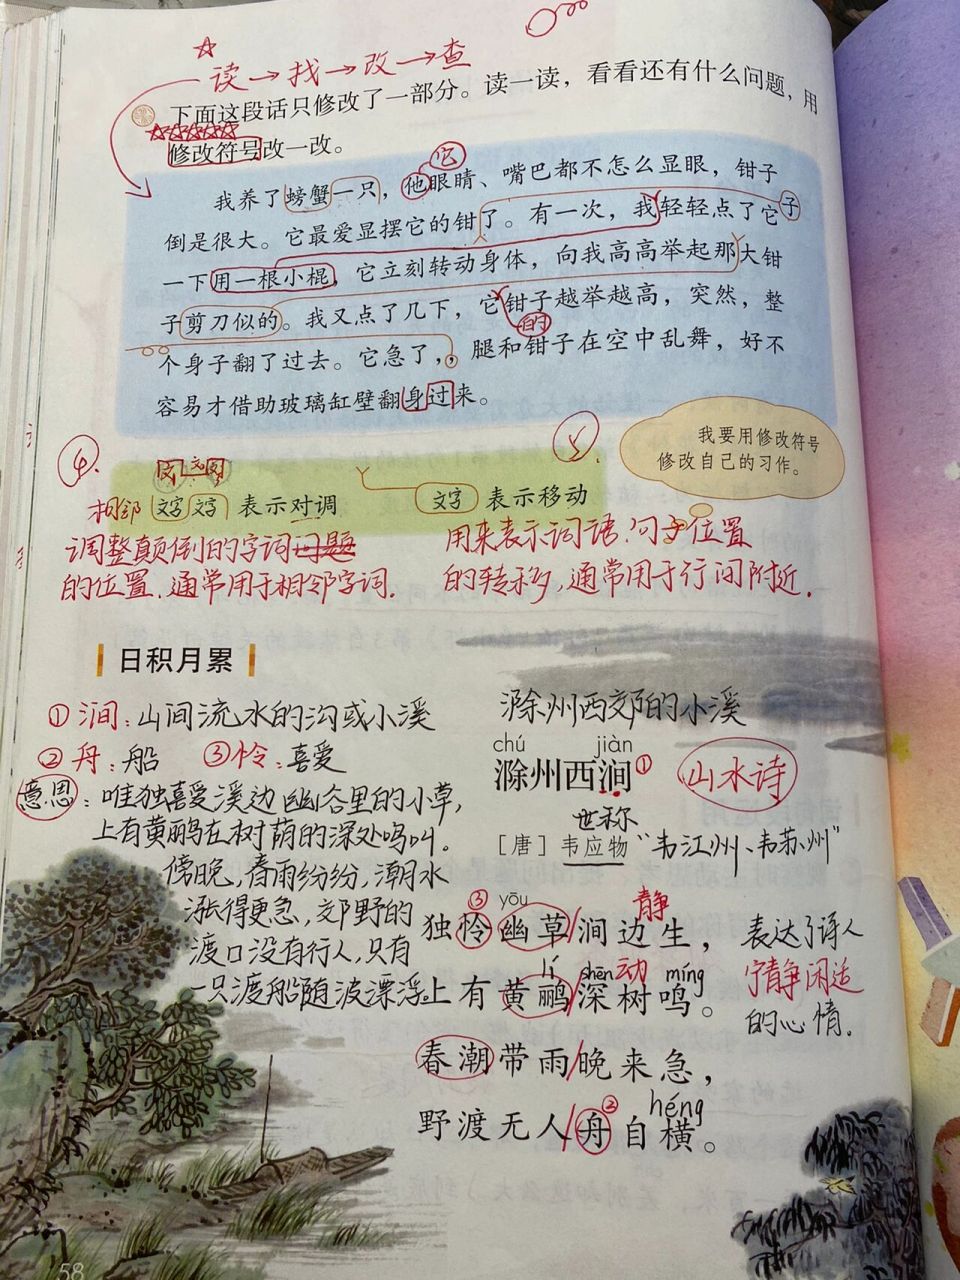 读→找→改→查
下面这段话只修改了一部分。读一读，看看还有什么问题，用
修改符号改一改。
它
我养了螃蟹一只，他眼睛、嘴巴都不怎么显眼，钳子
倒是很大。它最爱显摆它的钳了。有一次，我轻轻点了它
子
一下用一根小棍，它立刻转动身体，向我高高举起那大钳
子剪刀似的。我又点了几下，它钳子越举越高，突然，整
的
个身子翻了过去。它急了，，腿和钳子在空中乱舞，好不
容易才借助玻璃缸壁翻身过来。
我要用修改符号
修改自己的习作。
④.
⑤.
相邻 文字 文字 表示对调
文字 表示移动
调整颠倒的字词问题
的位置.通常用于相邻字词.
用来表示词语.句子位置
的转移.通常用于行间附近.
日积月累
①涧：山间流水的沟或小溪
②舟：船 ③怜：喜爱
意思：唯独喜爱溪边幽谷里的小草，
上有黄鹂在树荫的深处鸣叫。
傍晚，春雨纷纷，潮水
涨得更急，郊野的
渡口没有行人，只有
一只渡船随波漂浮。
滁州西郊的小溪
chú jiàn
滁州西涧① 山水诗
世称
［唐］韦应物“韦江州、韦苏州”
③ yōu 静
独怜幽草/涧边生，
lí shēn 动 míng
上有黄鹂/深树鸣。
春潮带雨/晚来急，
② héng
野渡无人/舟自横。
表达了诗人
宁静闲适
的心情.
58